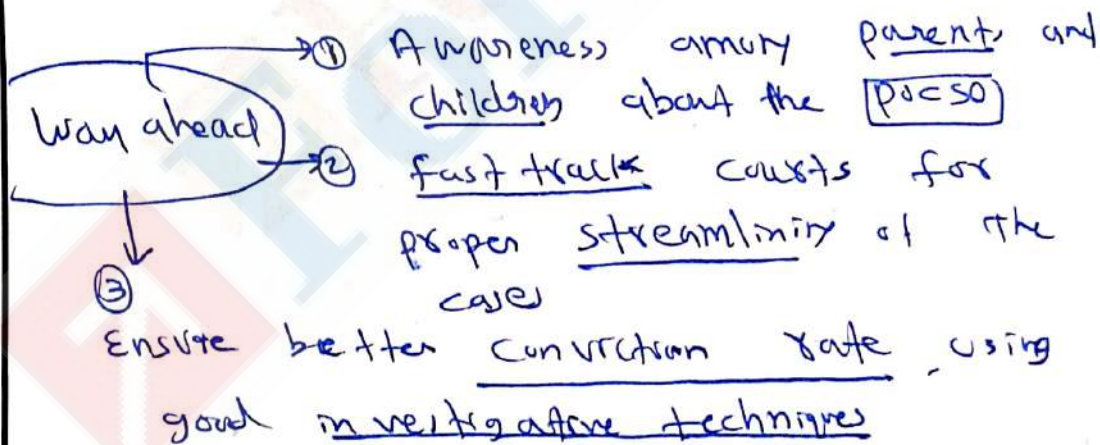 ① Awareness among parents and
children about the POCSO
Way ahead
② fast track courts for
proper streamlining of the
cases
③
Ensure better conviction rate using
good investigative techniques